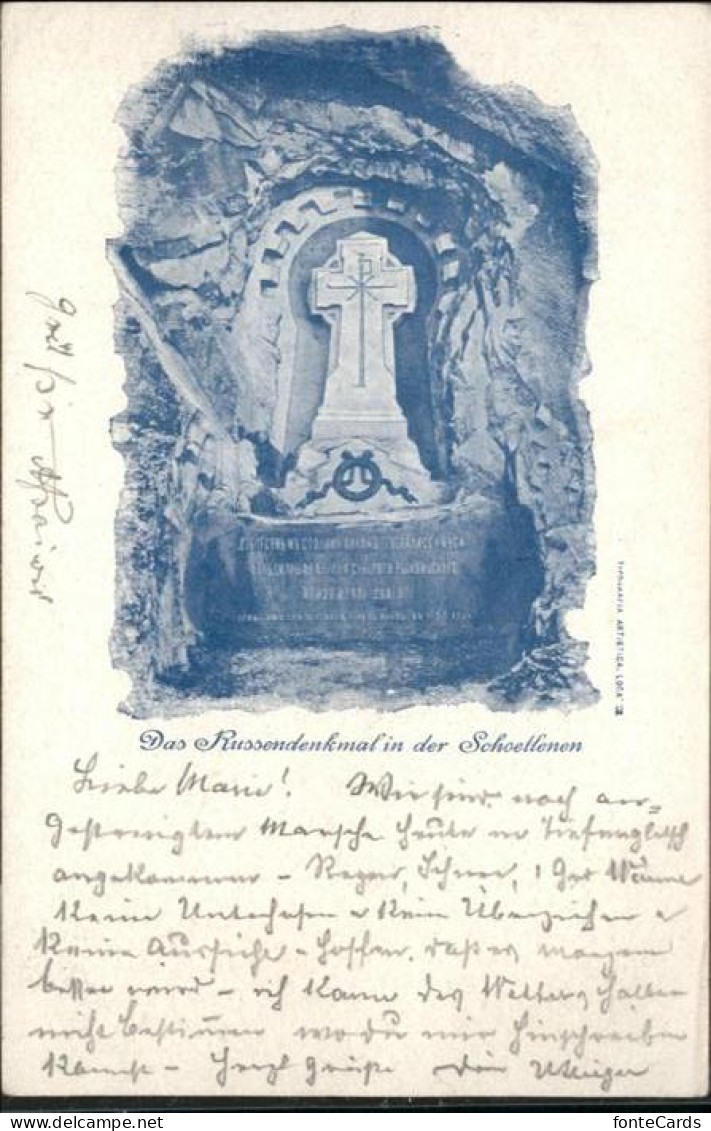 Das Russendenkmal in der Schoellenen
TIPOGRAFIA ARTISTICA, LOCA
Liebe Marie! Wir sind nach an=
gestrengtem Marsche heute in
angekommen - Regen, Schnee,
keine Unterhosen & kein Überzieher &
keine Aussicht - hoffen, daß es morgen
besser wird - ich kann des Wetters halber
nicht bestimmen wo du mir hinschreiben
kannst - Herzl Grüße Dein
fonteCards